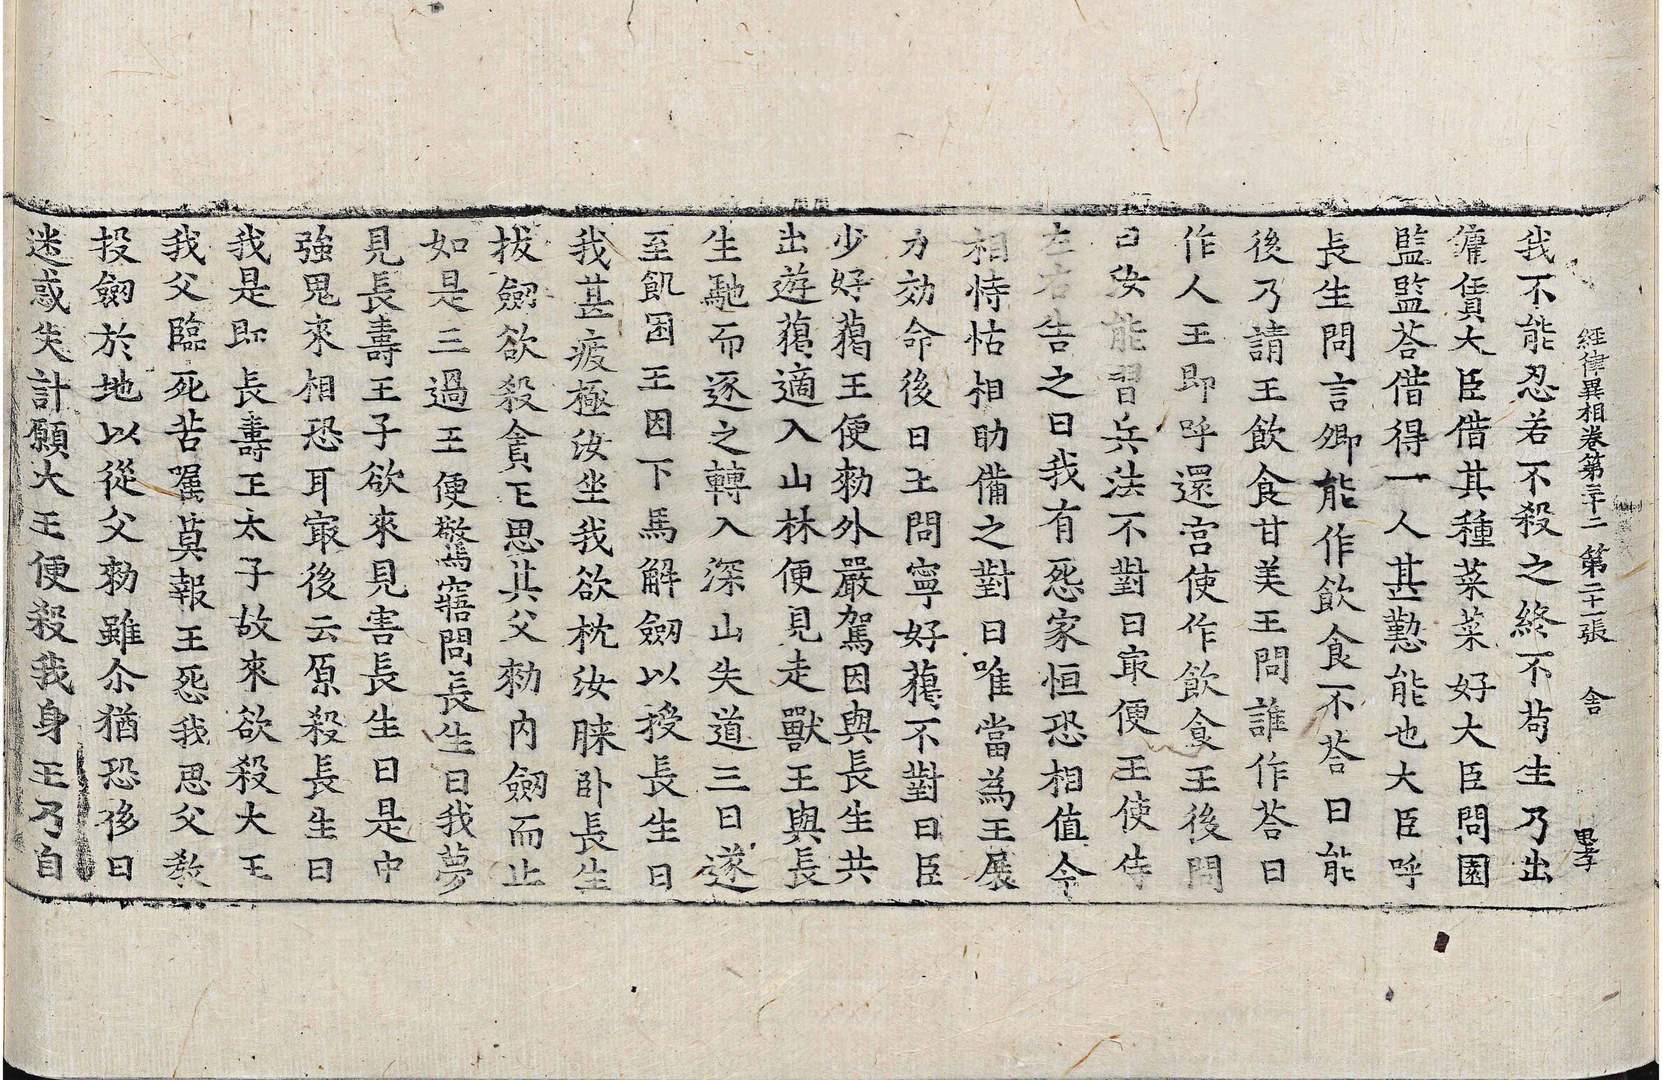 經律異相卷第三十二 第二十一張 舍 思孝
我不能忍若不殺之終不苟生乃出
傭賃大臣借其種菜菜好大臣問園
監監荅借得一人甚懃能也大臣呼
長生問言卿能作飲食不荅曰能
後乃請王飲食甘美王問誰作荅曰
作人王即呼還宮使作飲食王後問
曰汝能習兵法不對曰㝡便王使侍
左右告之曰我有惌家恒恐相值今
相恃怙相助備之對曰唯當為王展
力効命後曰王問寧好獦不對曰臣
少好獦王便勑外嚴駕因與長生共
出遊獦適入山林便見走獸王與長
生馳而逐之轉入深山失道三日遂
至飢困王因下馬解劒以授長生曰
我甚疲極汝坐我欲枕汝膝卧長生
拔劒欲殺貪王思其父勑內劒而止
如是三過王便驚寤問長生曰我夢
見長壽王子欲來見害長生曰是中
強鬼來相恐耳㝡後云原殺長生曰
我是即長壽王太子故來欲殺大王
我父臨死苦囑莫報王惌我思父教
投劒於地以從父勑雖尒猶恐後日
迷惑失計願大王便殺我身王乃自